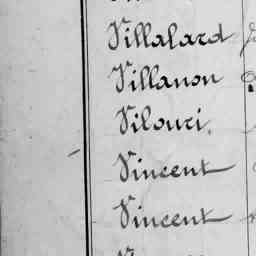 Villalard
Villanon
Vilouri.
Vincent
Vincent